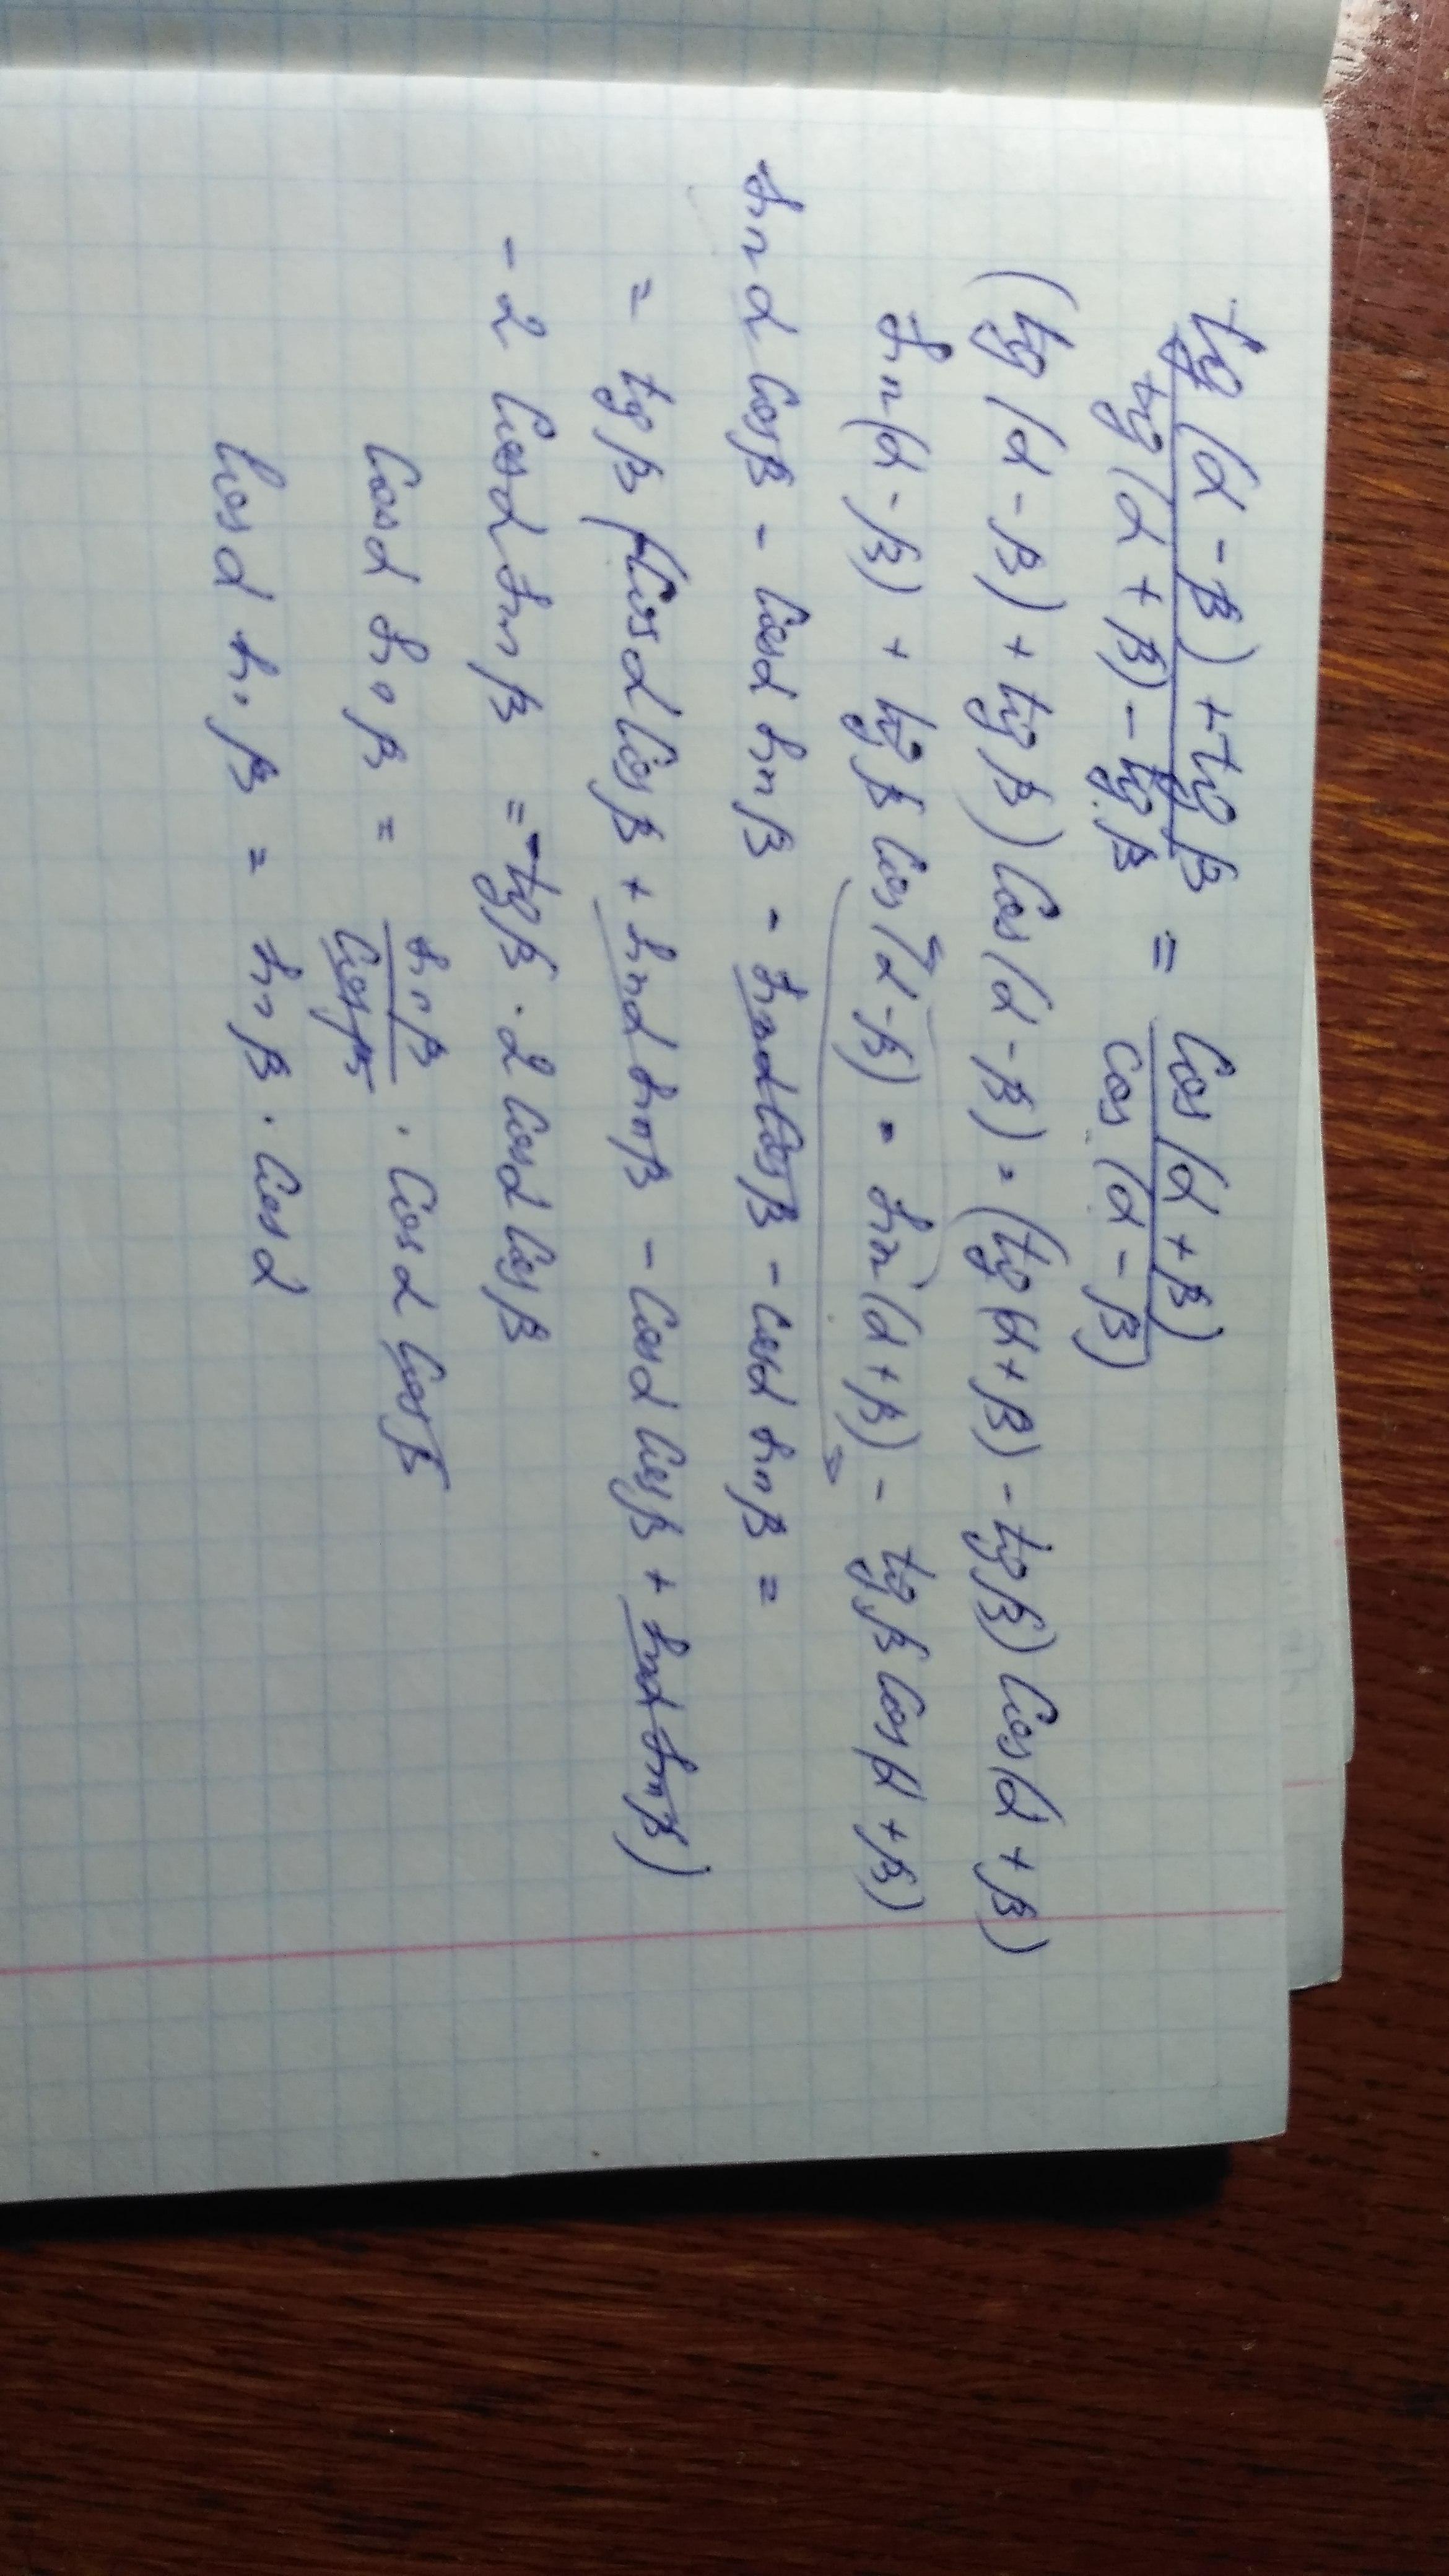 tg(α-β)+tgβ / tg(α+β)-tgβ = Cos(α+β) / cos(α-β)
(tg(α-β)+tgβ)Cos(α-β) = (tg(α+β)-tgβ)Cos(α+β)
Sin(α-β) + tgβ Cos(α-β) = Sin(α+β) - tgβ Cos(α+β)
Sin α Cosβ - Cosα Sinβ - Sinα Cosβ - Cosα Sinβ =
= tgβ (-Cosα Cosβ + Sinα Sinβ - Cosα Cosβ + Sinα Sinβ)
- 2 Cosα Sinβ = -tgβ · 2 Cosα Cosβ
Cosα Sinβ = Sinβ / Cosβ · Cosα Cosβ
Cosα Sinβ = Sinβ · Cosα